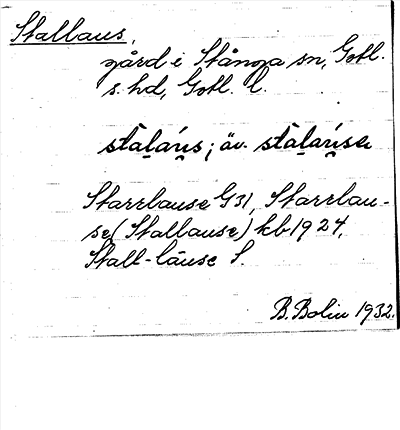 Stallaus,
gård i Stånga sn, Gotl.
s. hd, Gotl. l.
stàlau̯s; äv. stàlau̯sa
Starrlause G31, Starrlau-
se (Stallause) kb 1924,
Stall-läuse S.
B. Bolin 1932.